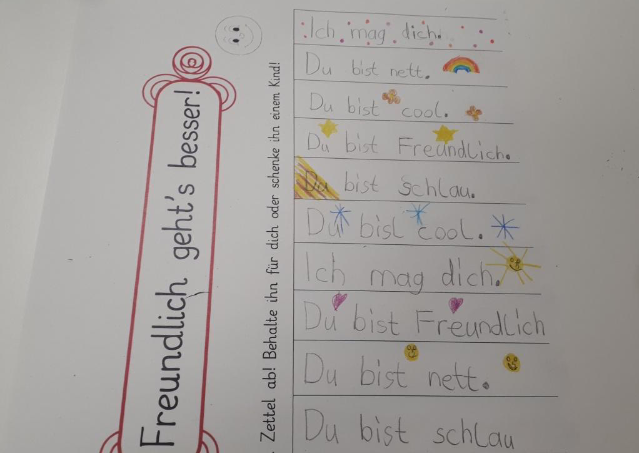 Freundlich geht's besser!
Zettel ab! Behalte ihn für dich oder schenke ihn einem Kind!
Ich mag dich.
Du bist nett.
Du bist cool.
Du bist Freundlich.
Du bist schlau.
Du bist cool.
Ich mag dich.
Du bist Freundlich
Du bist nett.
Du bist schlau